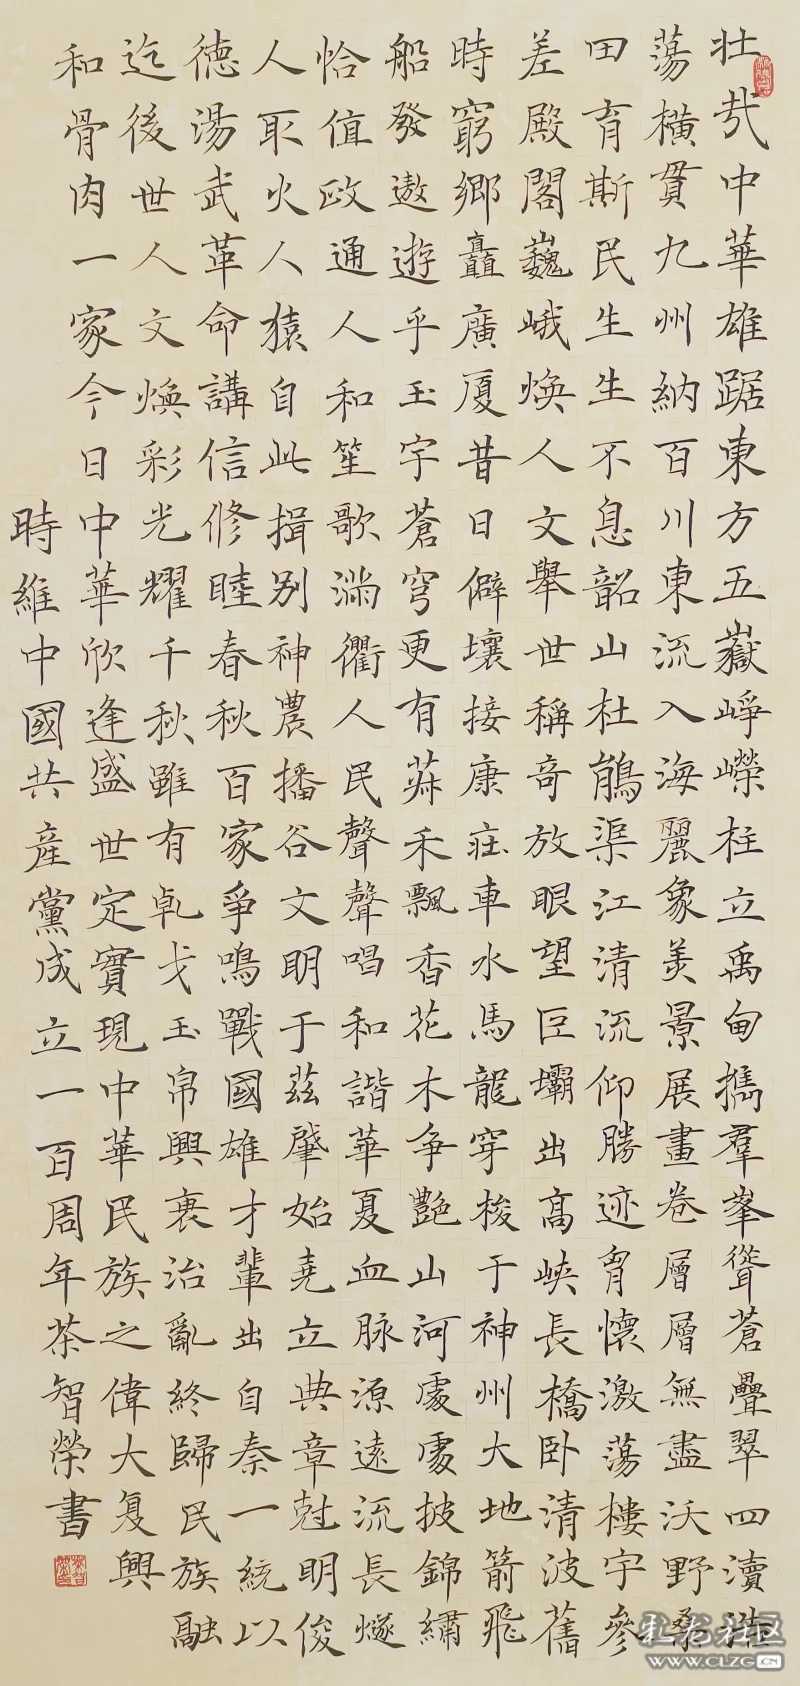 壯哉中華雄踞東方五嶽崢嶸柱立禹甸攜羣峯聳蒼疊翠四瀆浩
蕩橫貫九州納百川東流入海麗象美景展畫卷層層無盡沃野桑
田育斯民生生不息韶山杜鵑渠江清流仰勝迹胷懷激蕩樓宇參
差殿閣巍峨焕人文舉世稱奇放眼望巨壩出高峽長橋卧清波舊
時窮鄉矗廣厦昔日僻壤接康莊車水馬龍穿梭于神州大地箭飛
船發遨遊乎玉宇蒼穹更有禾飄香花木争艷山河處處披錦繡
恰值政通人和笙歌滿衢人民聲聲唱和諧華夏血脉源遠流長燧
人取火人猿自此揖别神農播谷文明于兹肇始堯立典章尅明俊
德湯武革命講信修睦春秋百家爭鳴戰國雄才輩出自秦一統以
迄後世人文焕彩光耀千秋雖有乹戈玉帛興衰治亂終歸民族融
和骨肉一家今日中華欣逢盛世定實現中華民族之偉大复興
時維中國共產黨成立一百周年茶智榮書
彩龙社区
WWW.CLZG.CN